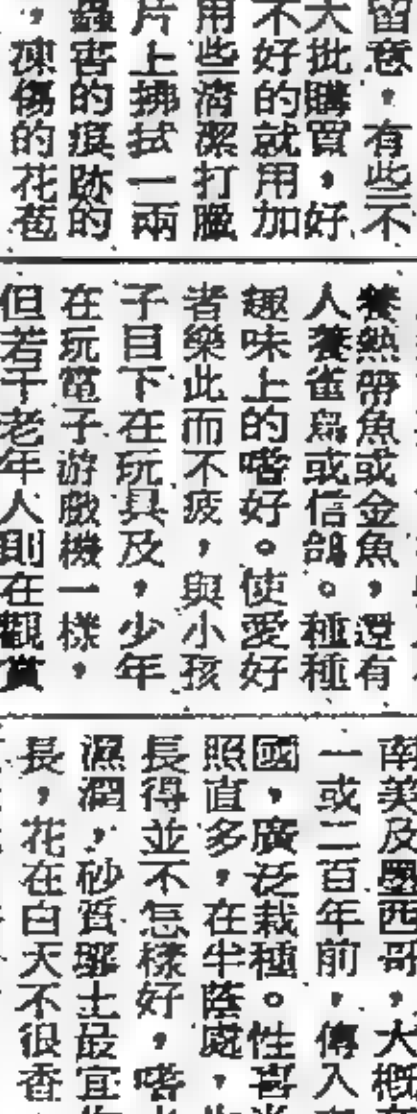 留意，有些不
大批購買，好
不好的就用加
用些清潔打臘
片上拂拭一兩
蟲害的痕跡的
，凍傷的花苞
養熱帶魚或金魚，還有
人養雀鳥或信鴿。種種
趣味上的嗜好。使愛好
者樂此而不疲，與小孩
子目下在玩具及，少年
在玩電子游戲機一樣，
但若干老年人則在觀賞
南美及墨西哥，大概
一或二百年前，傳入
國，廣泛栽種。性喜
照直多，在半蔭處，
長得並不怎樣好，嗜
濕潤，砂質壤土最宜
長，花在白天不很香